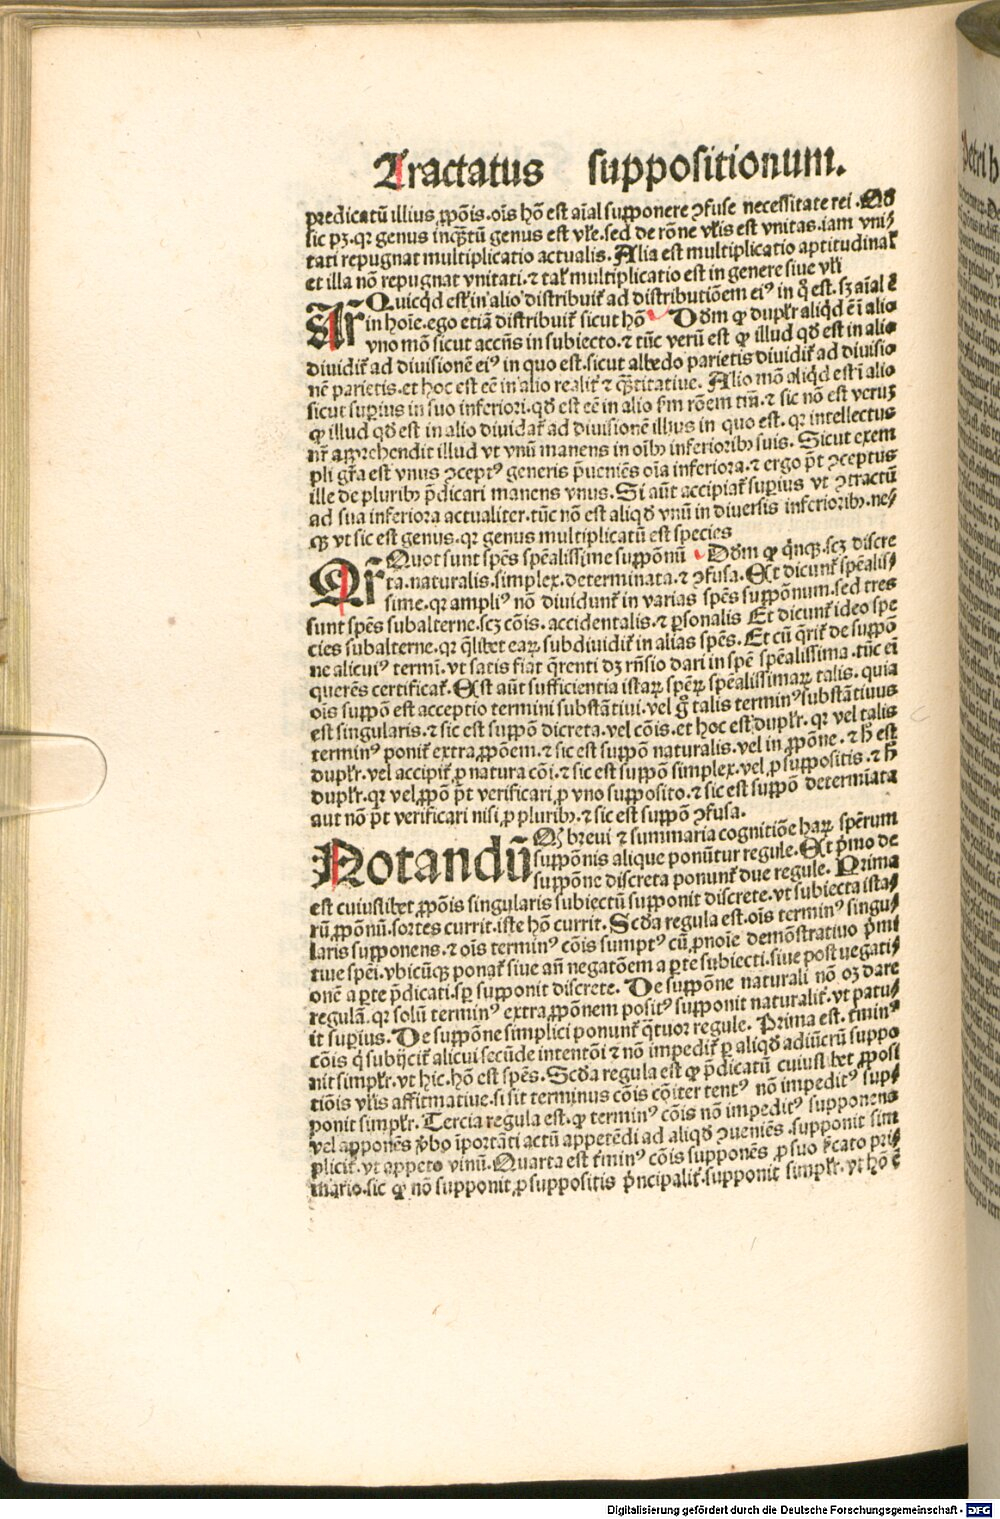 Tractatus suppositionum.
predicatū illius ꝓpõis. oĩs hõ est aĩal supponere ꝯfuse necessitate rei. Qđ
sic pꝫ. qꝛ genus inqꝫtū genus est vle. sed de rõne vlis est vnitas. iam vni⸗
tati repugnat multiplicatio actualis. Alia est multiplicatio aptitudinal̕
et illa nõ repugnat vnitati. ⁊ tal̕ multiplicatio est in genere siue vli
Ar̃ Quicqd est in alio distribuit̕ ad distributiõem eiꝰ in q̊ est. sꝫ aĩal ē
in hoĩe. ergo etiã distribuit̕ sicut hõ Dđm ꝙ duplr̕ aliqđ ē ĩ alio
vno mõ sicut accñs in subiecto. ⁊ tũc verũ est ꝙ illud qđ est in alio
diuidit̕ ad diuisionē eiꝰ in quo est. sicut albedo parietis diuidit̕ ad diuisio
nē parietis. et hoc est eē in alio realit̕ ⁊ q̃titatiue. Alio mõ aliqđ est ĩ alio
sicut supius in suo inferiori. qđ est eē in alio fm rõem tm̄. ⁊ sic nõ est verũ
ꝙ illud qđ est in alio diuidat̕ ad diuisionē illius in quo est. qꝛ intellectus
nr̄ apprehendit illud vt vnũ manens in oĩbꝫ inferioribꝫ suis. Sicut exem
pli gr̃a est vnus ꝯceptꝰ generis pueniẽs oĩa inferiora. ⁊ ergo p̃t ꝯceptus
ille de pluribꝫ p̃dicari manens vnus. Si aũt accipiat̕ supius vt ꝯtractũ
ad sua inferiora actualiter. tũc nõ est aliqđ vnũ in diuersis inferioribꝫ. ne⸗
qꝫ vt sic est genus. qꝛ genus multiplicatũ est species
Qr̃ Quot sunt spẽs spẽalissime suppõnũ Dđm ꝙ qnqꝫ. scꝫ discre
ta. naturalis. simplex. determinata. ⁊ ꝯfusa. Et dicunt̕ spẽalis⸗
sime. qꝛ ampliꝰ nõ diuidunt̕ in varias spẽs suppõnum. sed tres
sunt spẽs subalterne. scꝫ cõis. accidentalis. ⁊ psonalis Et dicunt̕ ideo spe
cies subalterne. qꝛ qlibet eaꝝ subdiuidit̕ in alias spẽs. Et cũ qrit̕ de suppõ
ne alicuiꝰ termĩ. vt satis fiat qrenti dꝫ rñsio dari in spẽ spẽalissima. tũc eĩ
querẽs certificat̕. Est aũt sufficientia istaꝝ spẽꝝ spẽalissimaꝝ talis. quia
oĩs suppõ est acceptio termini substãtiui. vel g̊ talis terminꝰ substãtiuus
est singularis. ⁊ sic est suppõ dicreta. vel cõis. et hoc est duplr̕. qꝛ vel talis
terminꝰ ponit̕ extra ꝓpõem. ⁊ sic est suppõ naturalis. vel in ꝓpõne. ⁊ ħ est
duplr̕. vel accipit̕ ꝓ natura cõi. ⁊ sic est suppõ simplex. vel ꝓ suppositis. ⁊ ħ
duplr̕. qꝛ vel ꝓpõ p̃t verificari ꝓ vno supposito. ⁊ sic est suppõ determiata
aut nõ p̃t verificari nisi ꝓ pluribꝫ. ⁊ sic est suppõ ꝯfusa.
Notandũ Qꝫ breui ⁊ summaria cognitiõe haꝝ spẽrum
suppõnis alique ponũtur regule. Et pmo de
suppõne discreta ponunt̕ due regule. Prima
est cuiuslibet ꝓpõis singularis subiectũ supponit discrete. vt subiecta ista⸗
rũ ꝓpõnũ. sortes currit. iste hõ currit. Scđa regula est. oĩs terminꝰ singu⸗
laris supponens. ⁊ oĩs terminꝰ cõis sumptꝰ cũ ꝓnoĩe demõstratiuo pmi
tiue spẽi. vbicũqꝫ ponat̕ siue añ negatõem a pte subiecti. siue post negati⸗
onē a pte p̃dicati. sp supponit discrete. De suppõne naturali nõ oꝫ dare
regulã. qꝛ solũ terminꝰ extra ꝓpõnem positꝰ supponit naturalit̕. vt patu⸗
it supius. De suppõne simplici ponunt̕ q̃tuor regule. Prima est. t̕minꝰ
cõis q̊ subijcit̕ alicui secũde intentõi ⁊ nõ impedit̕ p aliqđ adiũctũ suppo
nit simplr̕. vt hic. hõ est spẽs. Scđa regula est ꝙ p̃dicatũ cuiuslibet ꝓposi
tiõis vlis affirmatiue. si sit terminus cõis cõiter tentꝰ nõ impeditꝰ sup⸗
ponit simplr̕. Tercia regula est. ꝙ terminꝰ cõis nõ impeditꝰ supponens
vel apponẽs ꝟbo ĩportãti actũ appetẽdi ad aliqđ ꝯueniẽs. supponit sim
plicit̕. vt appeto vinũ. Quarta est t̕minꝰ cõis supponẽs ꝓ suo sĩcato pri⸗
mario. sic ꝙ nõ supponit ꝓ suppositis pncipalit̕. supponit simplr̕. vt hõ ē
Digitalisierung gefördert durch die Deutsche Forschungsgemeinschaft - DFG